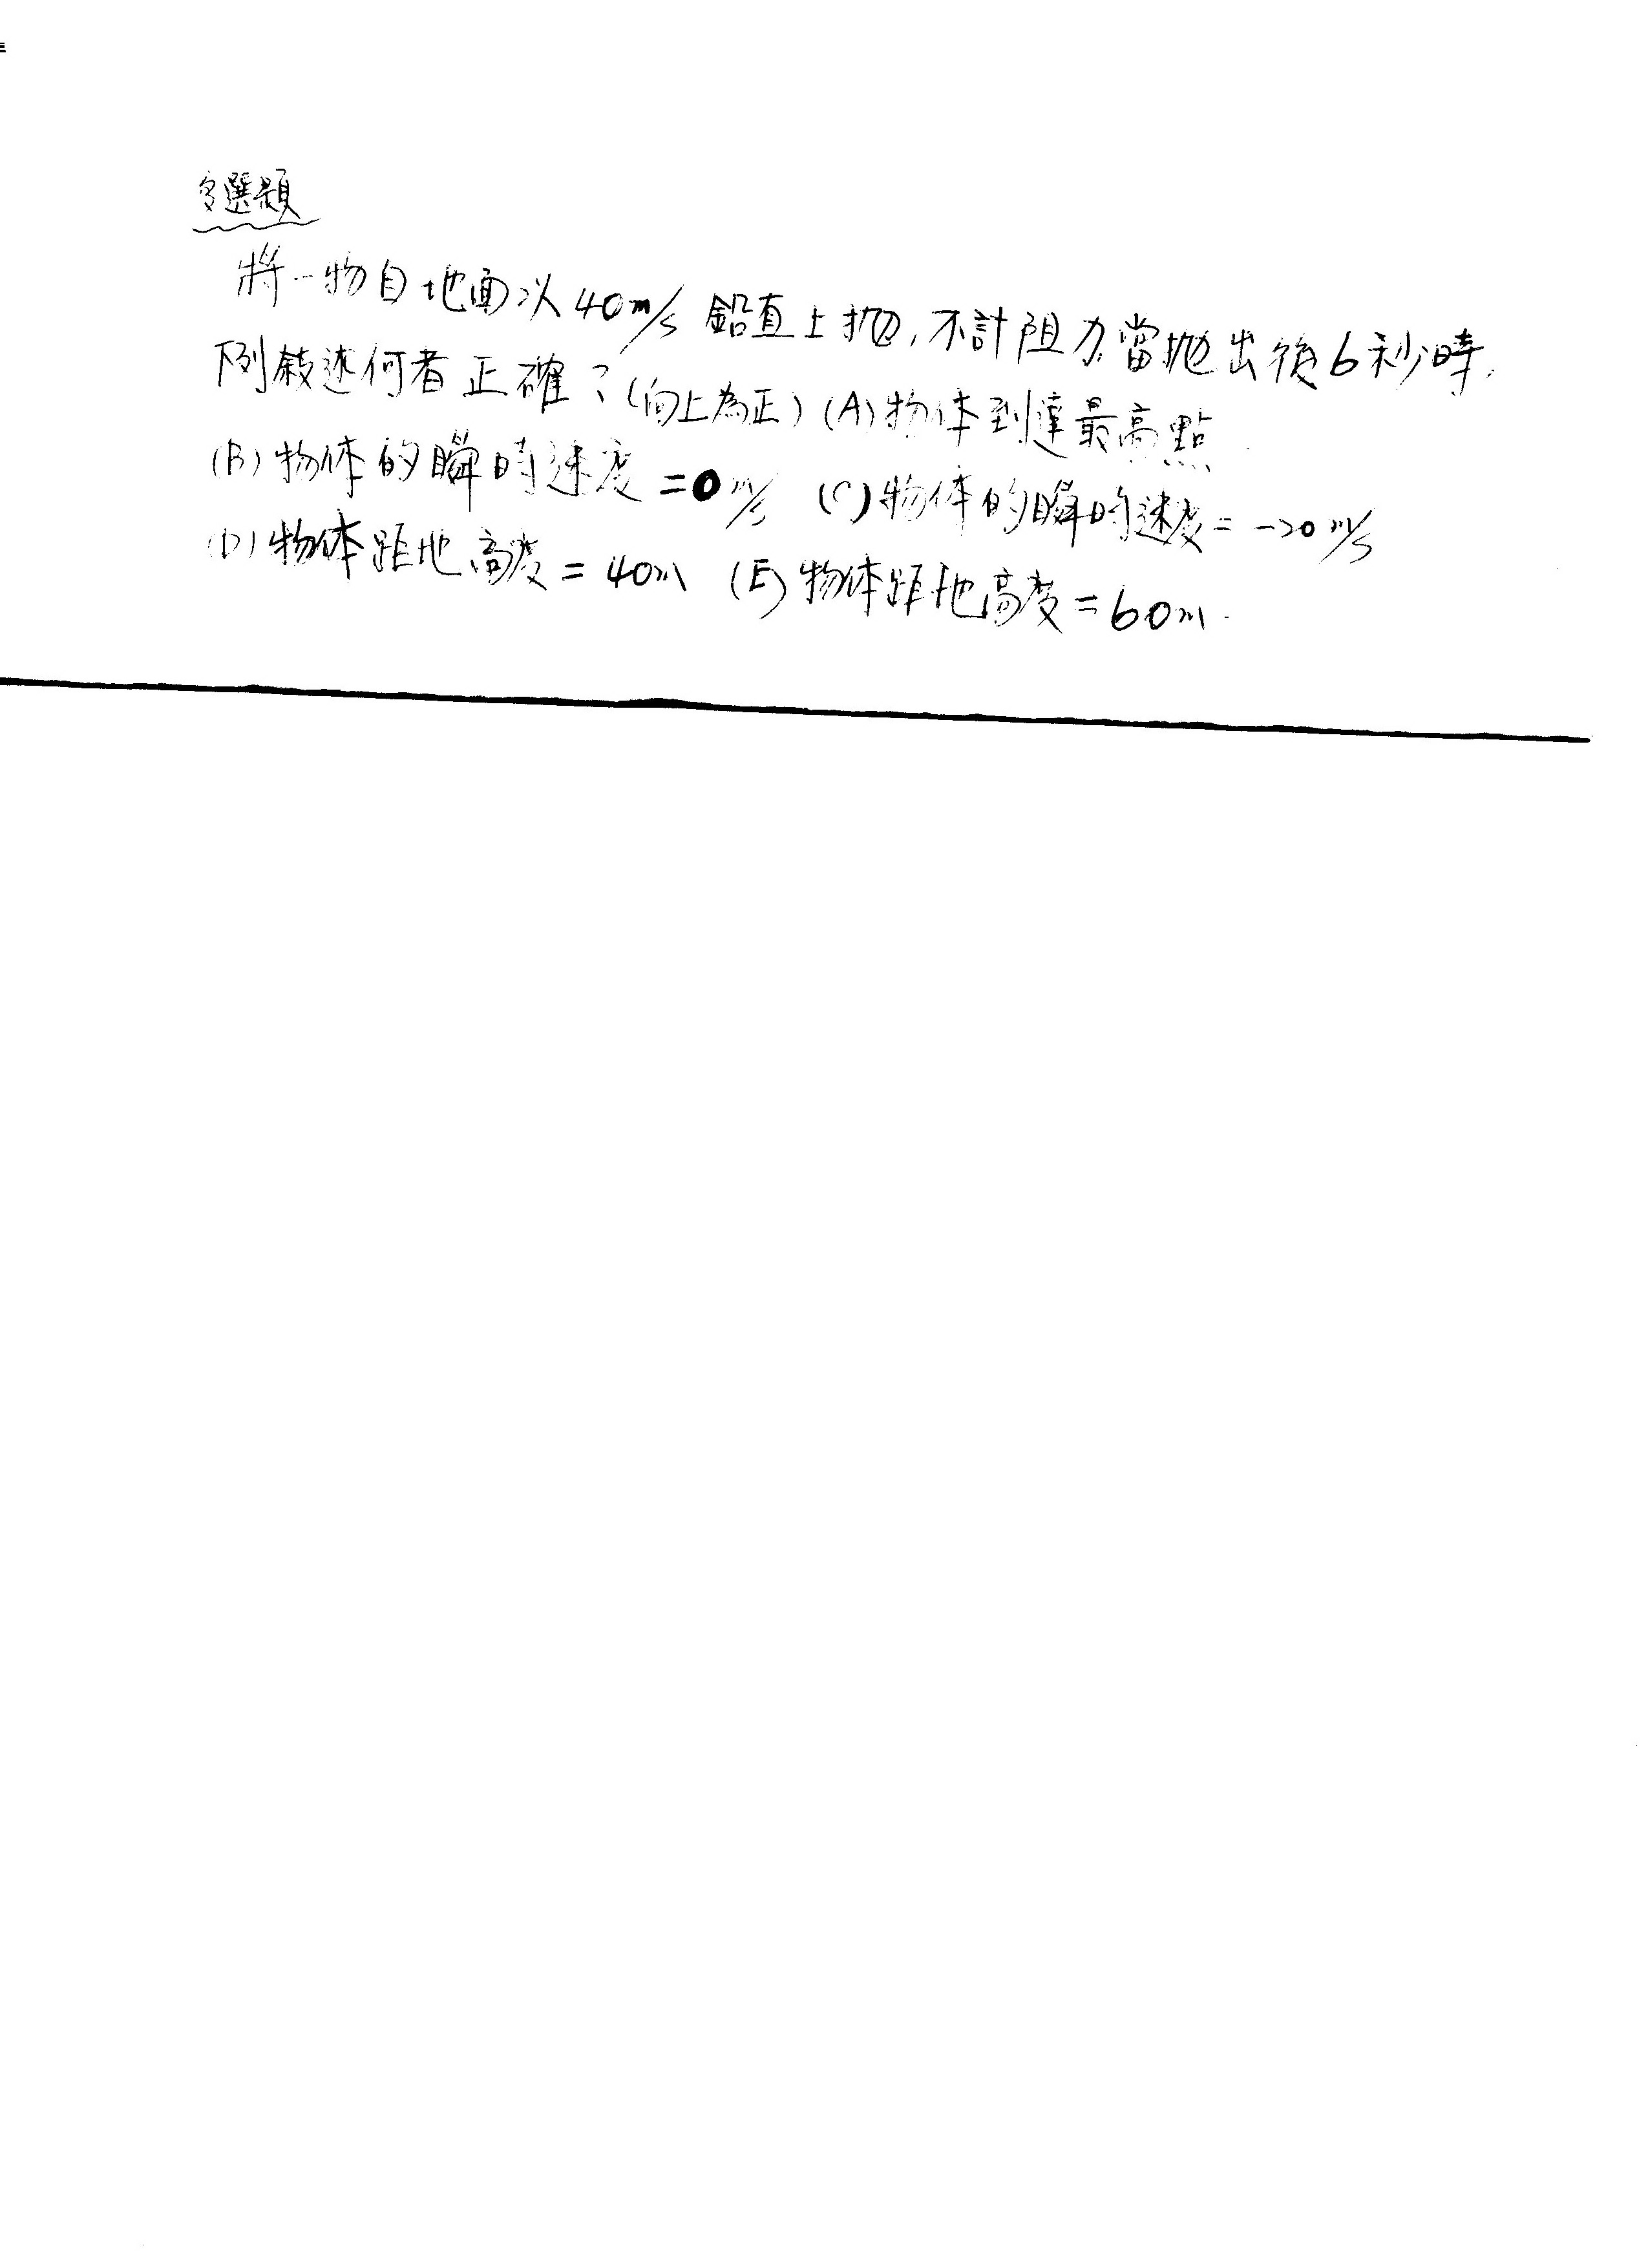 多選題
將一物自地面以40m/s鉛直上拋,不計阻力,當拋出後6秒時,
下列敍述何者正確?(向上為正)(A)物体到達最高點.
(B)物体的瞬時速度=0m/s (C)物体的瞬時速度=-20m/s
(D)物体距地高度=40m (E)物体距地高度=60m.